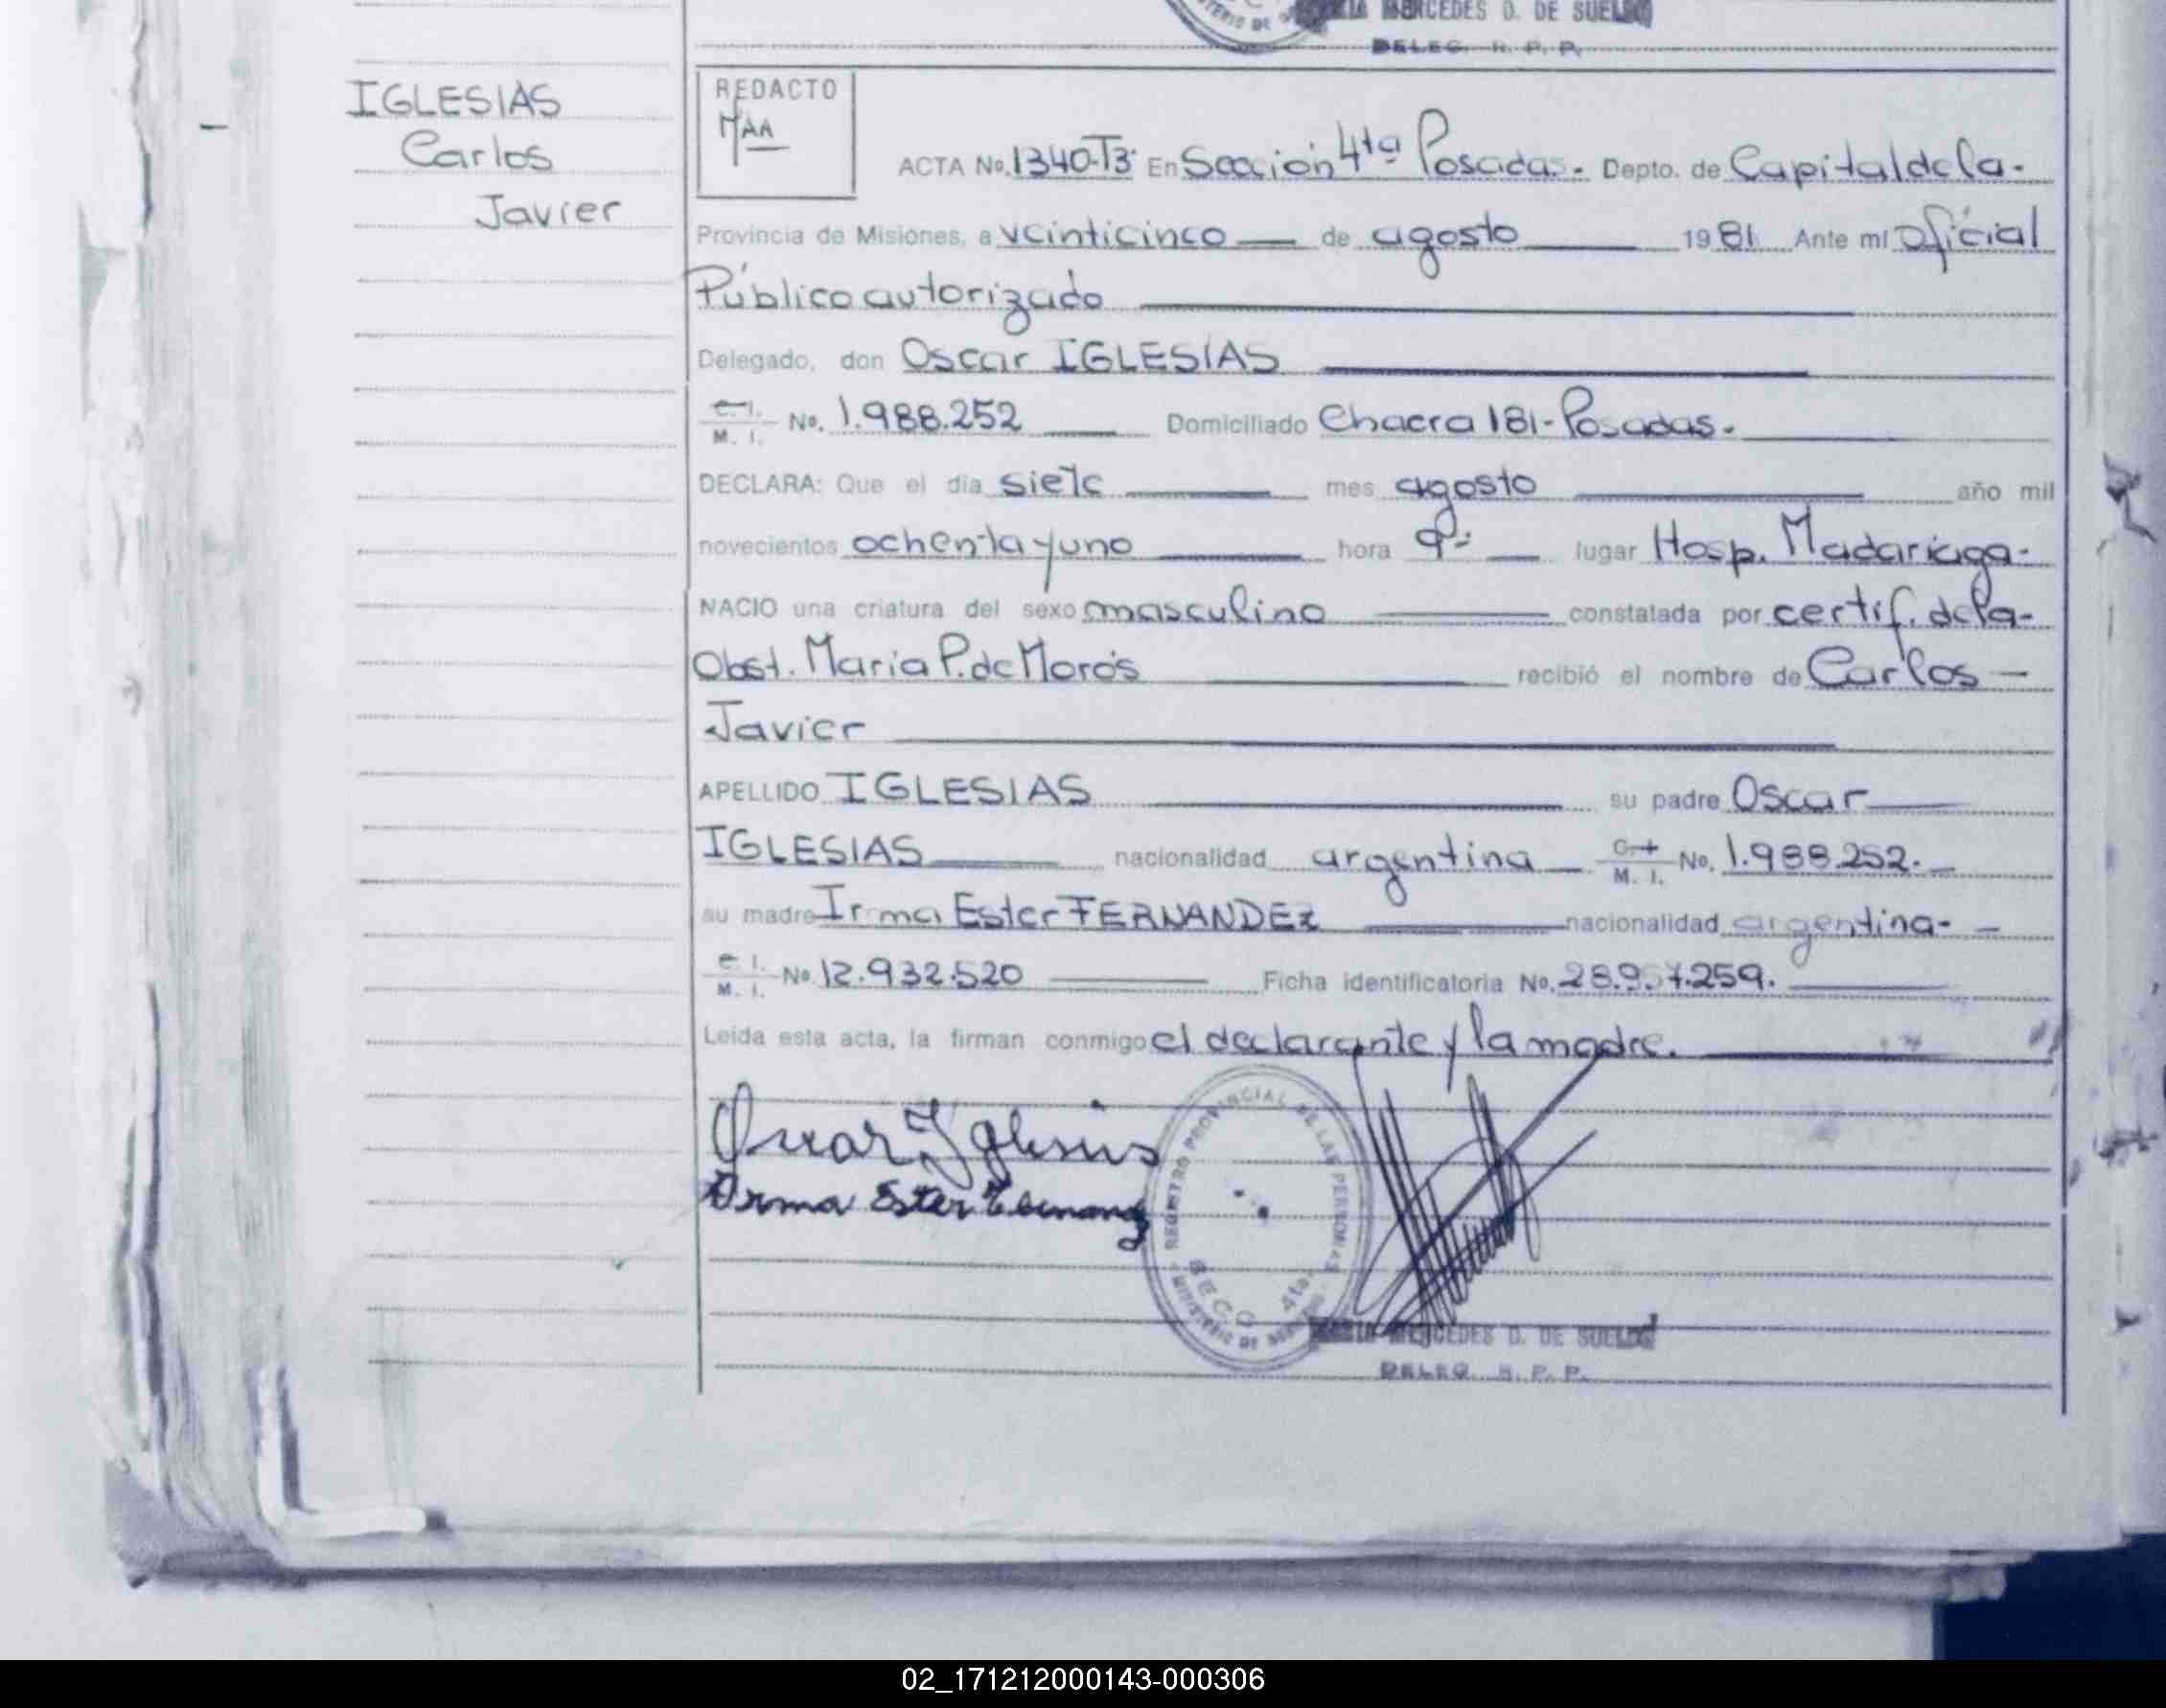 MERCEDES D. DE SUELDO
DELEG. R. P. P.
IGLESIAS
Carlos
Javier
REDACTO
MAA
ACTA No. 1340-T3- En Sección 4ta Posadas.- Depto. de Capital de la-
Provincia de Misiones, a veinticinco — de agosto — 1981 Ante mi Oficial
Público autorizado
Delegado, don Oscar IGLESIAS
C. I. M. I. No. 1.988.252 Domiciliado Chacra 181-Posadas.-
DECLARA: Que el día siete mes agosto año mil
novecientos ochenta y uno hora 9- lugar Hosp. Madariaga-
NACIO una criatura del sexo masculino constatada por certif. de la-
Obst. Maria P. de Morós recibió el nombre de Carlos —
Javier
APELLIDO IGLESIAS su padre Oscar
IGLESIAS nacionalidad argentina C. I. M. I. No. 1.988.252.-
su madre Irma Ester FERNANDEZ nacionalidad argentina-
C. I. M. I. No. 12.932.520 Ficha identificatoria No. 7.259.
Leída esta acta, la firman conmigo el declarante y la madre.
Oscar Iglesias
Irma Ester
REGISTRO PROVINCIAL DE LAS PERSONAS
SECC. 4ta
MINISTERIO DE
MERCEDES D. DE SUELDO
DELEG. R. P. P.
02_171212000143-000306